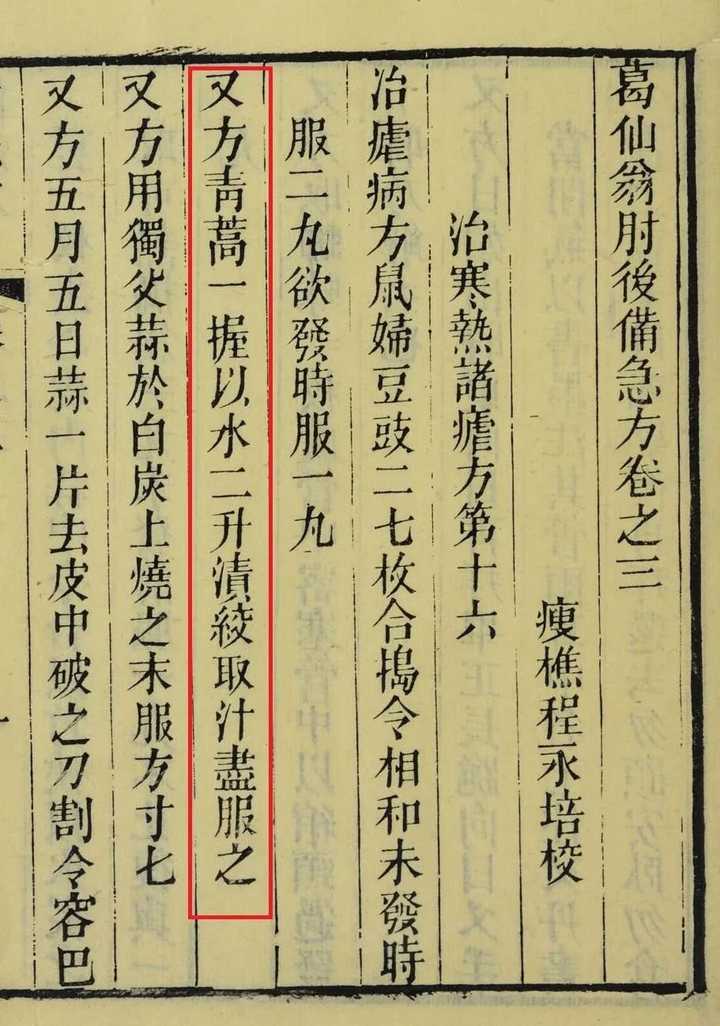 葛仙翁肘後備急方卷之三
瘦樵程永培校
治寒熱諸瘧方第十六
治瘧病方鼠婦豆豉二七枚合搗令相和未發時
服二丸欲發時服一丸
又方青蒿一握以水二升漬絞取汁盡服之
又方用獨父蒜於白炭上燒之末服方寸七
又方五月五日蒜一片去皮中破之刀割令容巴